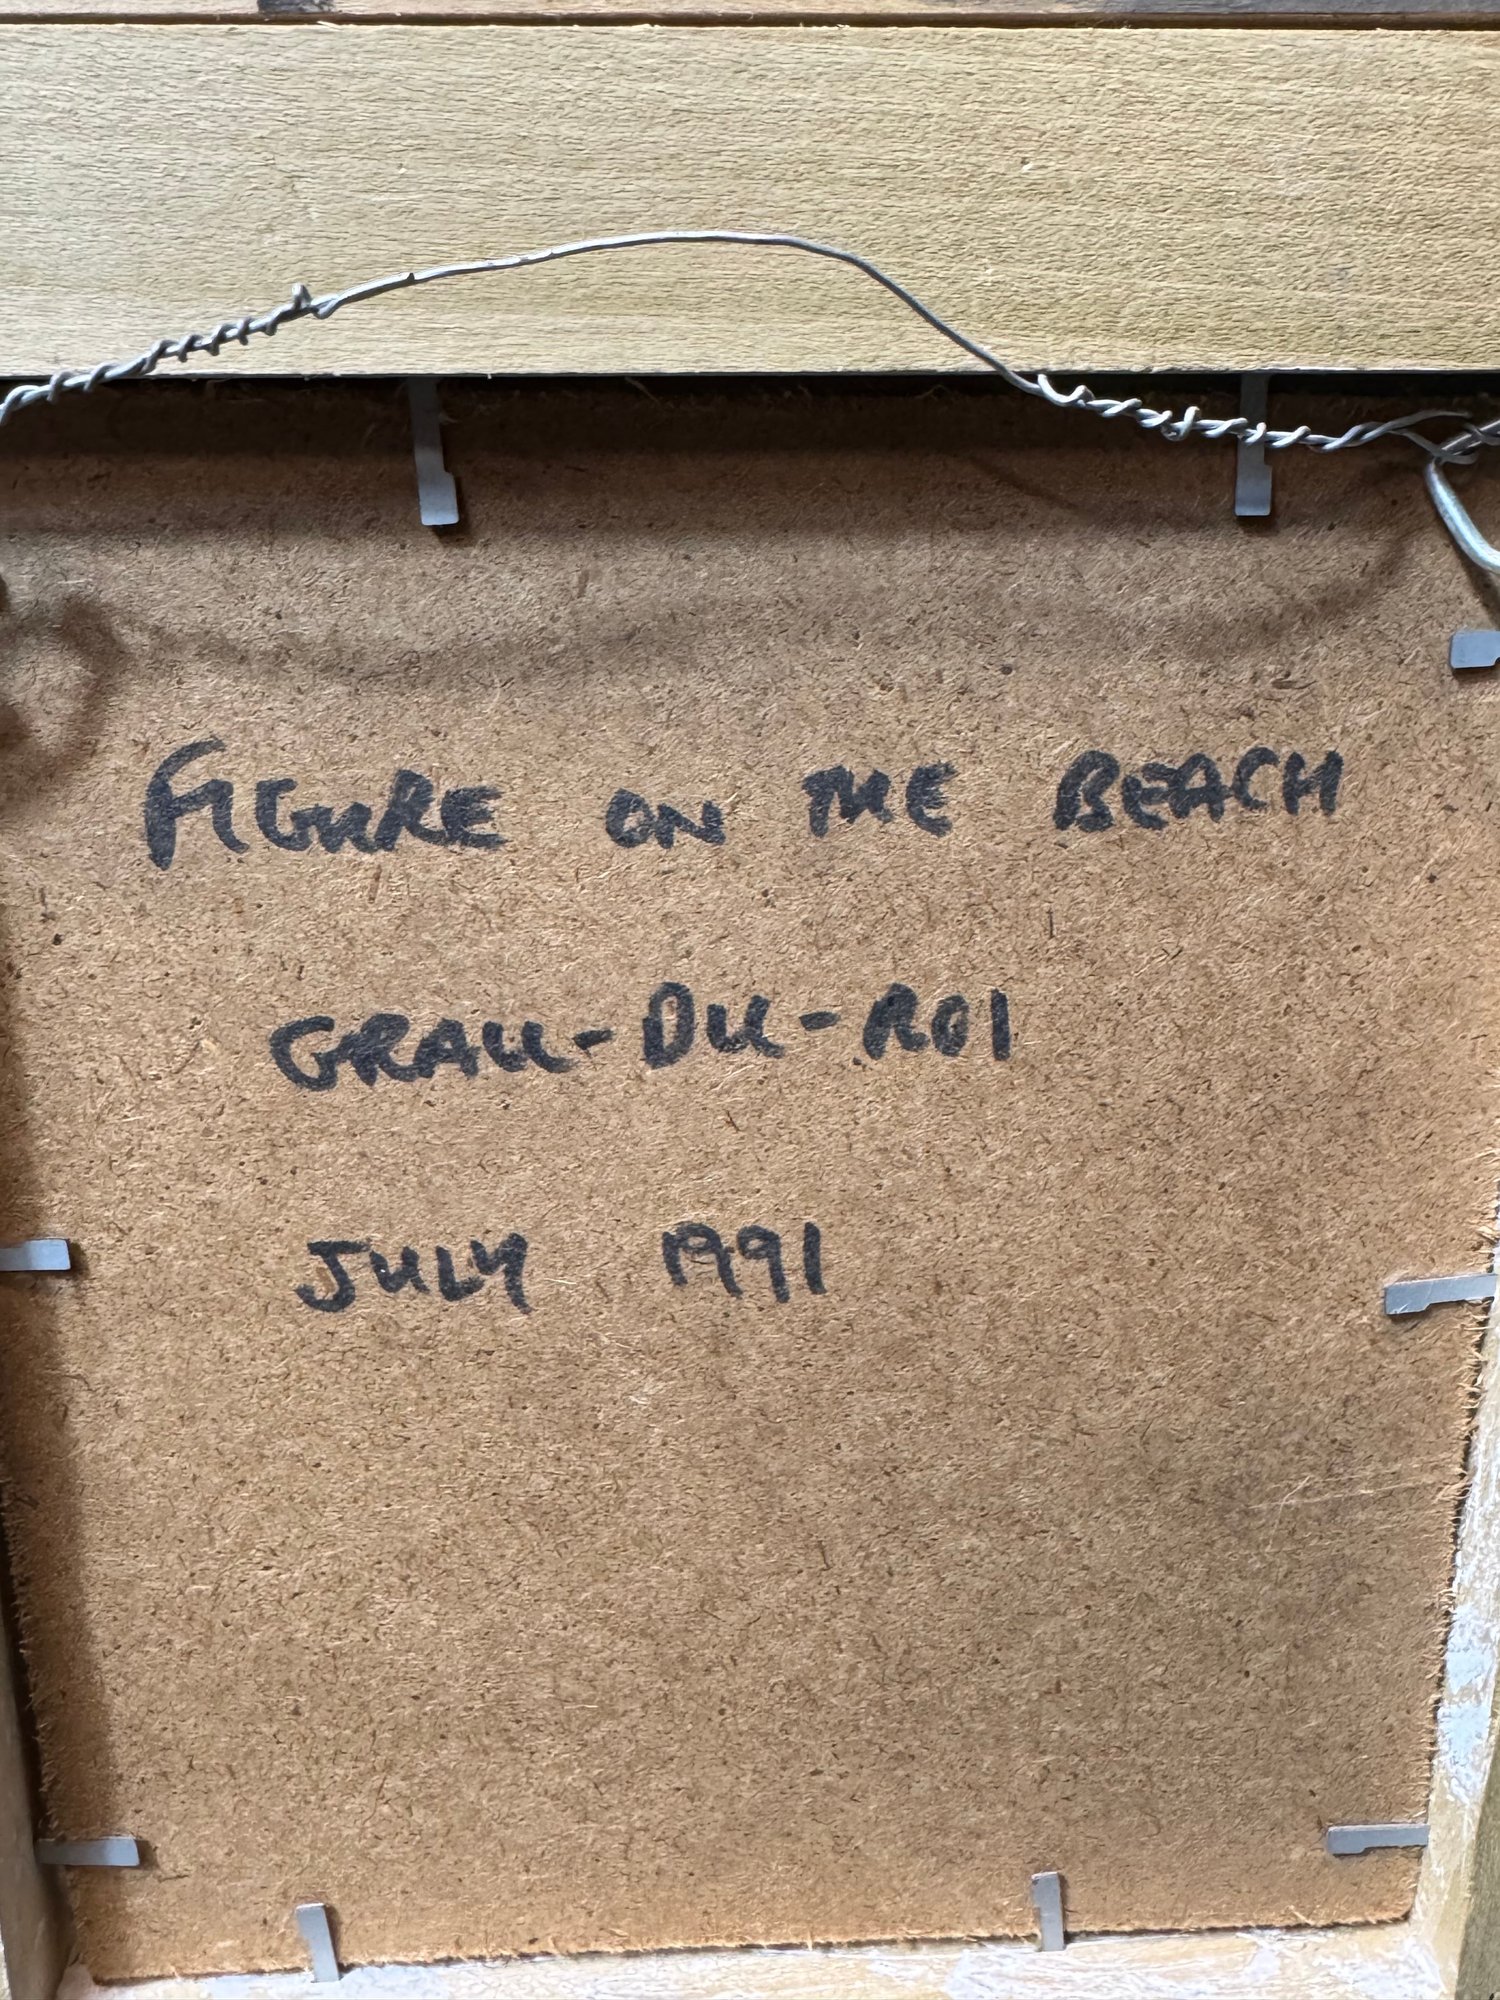 FIGURE ON THE BEACH
GRAU-DU-ROI
JULY 1991